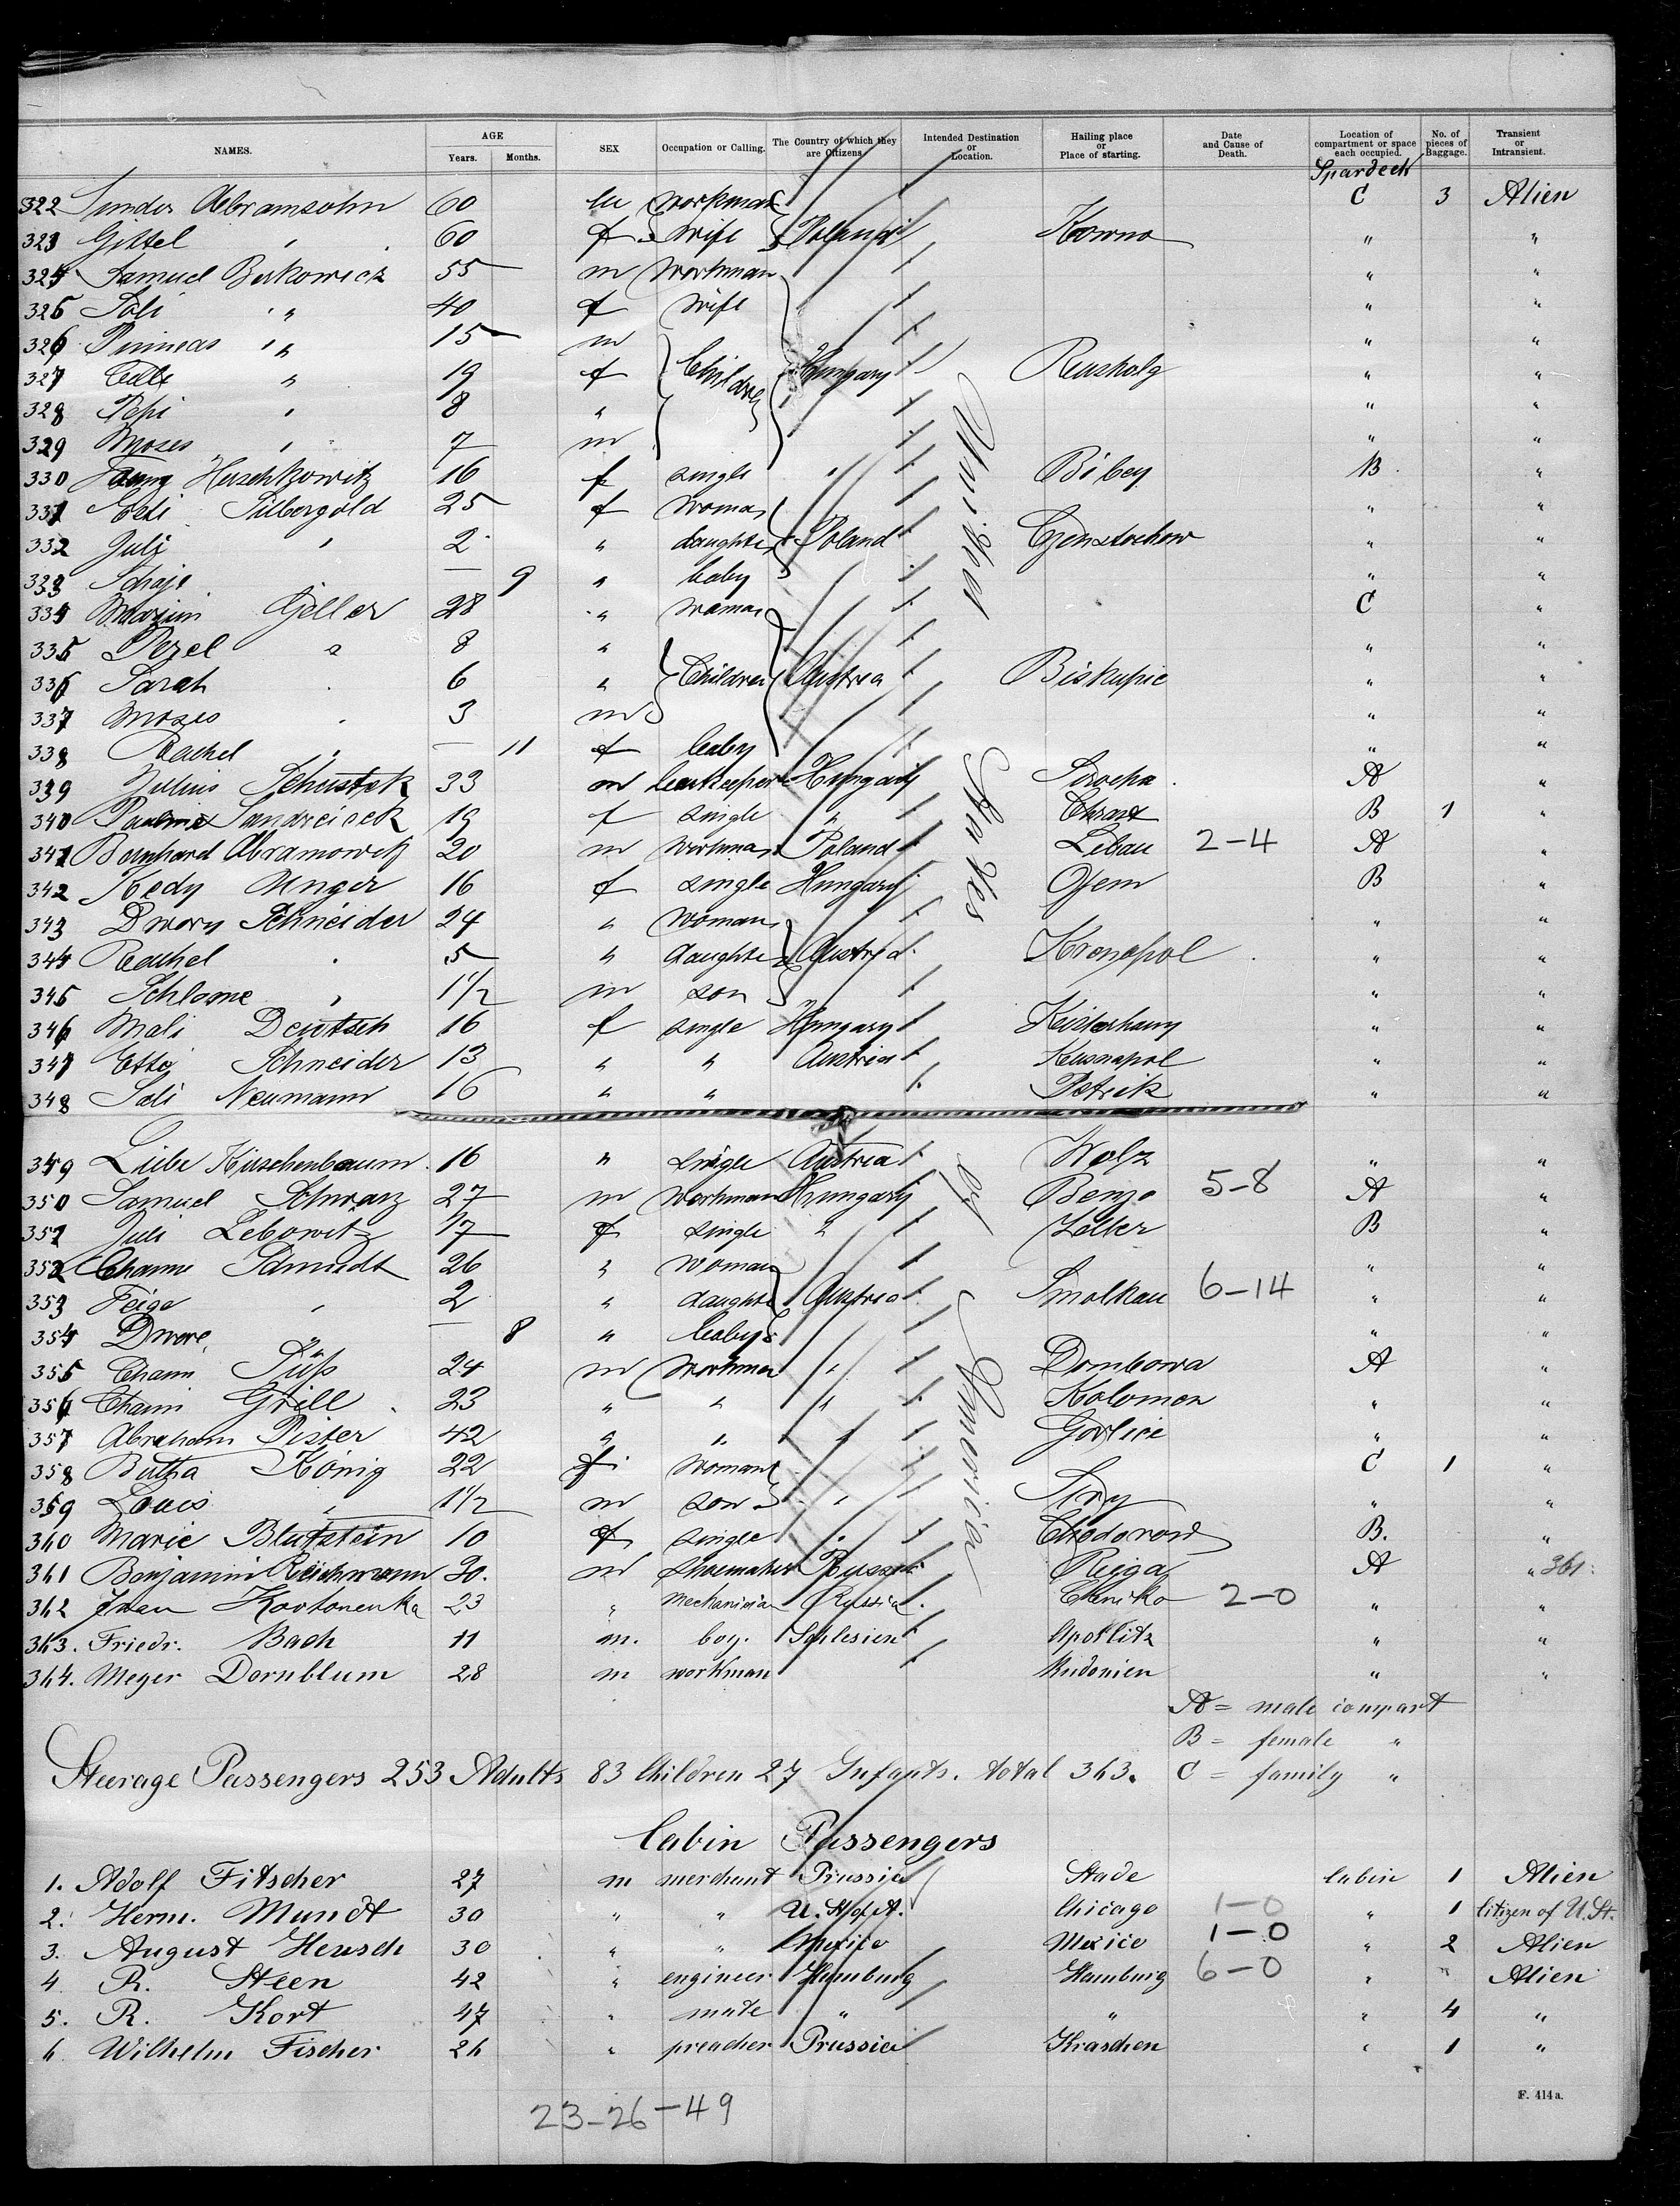 NAMES. AGE Years. Months. SEX Occupation or Calling. The Country of which they are Citizens Intended Destination or Location. Hailing place or Place of starting. Date and Cause of Death. Location of compartment or space each occupied. No. of pieces of Baggage. Transient or Intransient.
Spardeck
322 Sender Abramsohn 60 m workman C 3 Alien
323 Gittel " 60 f wife Poland Kowno " "
324 Samuel Berkowicz 55 m workman " "
325 Sali " 40 f wife " "
326 Pinneas " 15 m " "
327 " 19 f Children Hungary " "
328 Pepi " 8 " " "
329 Moses " 7 m " "
330 Fanny Herschkowitz 16 f single " B "
331 Silbergold 25 f woman " "
332 Julz " 2 " daughter Poland Czenstochow " "
333 Schaje — 9 " baby " "
334 Geller 28 " woman C "
335 Pezel " 8 " " "
336 Sarah " 6 " Children Austria Biskupic " "
337 Moses " 3 m " "
338 Rachel " — 11 f baby " "
339 Julius 33 m Hungary A "
340 19 f single " B 1 "
341 Bernhard Abramowitz 20 m workman Poland Lebau 2-4 A "
342 Kedy Unger 16 f single Hungary B "
343 Dwory Schneider 24 " woman " "
344 Rachel " 5 " daughter Austria " "
345 Schlome " 1 1/2 m son " "
346 Mali Deutsch 16 f single Hungary " "
347 Schneider 13 " " Austria " "
348 Sali Neumann 16 " " Petrik " "
349 Liebe Kirschenbaum 16 " single Austria Wolz " "
350 Samuel Schwarz 27 m workman Hungary 5-8 A "
351 Juli Lebowitz 17 f single " B "
352 Schmidt 26 " woman " "
353 Feige " 2 " daughter Austria Smolkau 6-14 " "
354 Dwore — 8 " baby " "
355 Chaim Süß 24 m workman " Dombowa A "
356 Chaim Grill 23 " " " Kolomea " "
357 Abraham Pister 42 " " " Gorlice " "
358 König 22 f woman C 1 "
359 Louis " 1 1/2 m son " Stry " "
360 Marie Blutstein 10 f single " Chodorow B. "
361 Benjamin Reichmann 20. m shoemaker Russia Riga A " 361.
362 Iwan 23 " mechanician Russia 2-0 " "
363. Friedr. Bach 11 m. boy. Schlesien " "
364. Meyer Dornblum 28 m workman " "
United States of America
A = male compart
B = female "
Steerage Passengers 253 Adults 83 Children 27 Infants. total 363. C = family "
Cabin Passengers
1. Adolf Fitscher 27 m merchant Prussia Stade Cabin 1 Alien
2. Herm. Mundt 30 " " U. St. of A. Chicago 1-0 " 1 Citizen of U. St.
3. August Heusch 30 " " Mexico Mexico 1-0 " 2 Alien
4. R. Steen 42 " engineer Hamburg Hamburg 6-0 " " Alien
5. R. Kort 47 " mate " " " 4 "
6. Wilhelm Fischer 26 " preacher Prussia Kraschen " 1 "
F. 414 a.
23-26-49